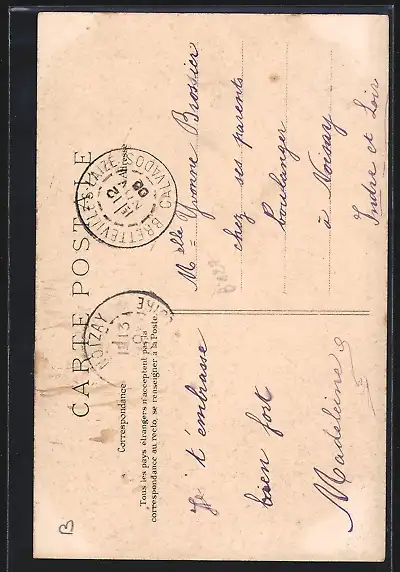 CARTE POSTALE
Correspondance
Adresse
Tous les pays étrangers n'acceptent pas la
correspondance au recto, se renseigner à la Poste.
Je t'embrasse
bien fort
Madeleine
Melle Yvonne Brossier
chez ses parents
boulanger
à Noizay
Indre et Loir
BRETTEVILLE-S-LAIZE
CALVADOS
NOIZAY
B